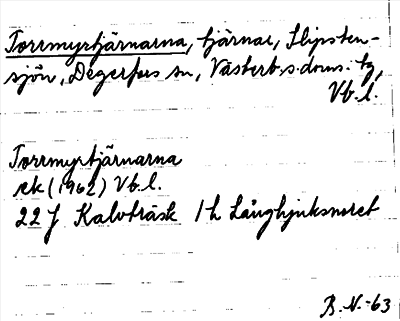 Torrmyrtjärnarna, tjärnar, Slipsten-
sjön, Degerfors sn, Västerb.s.doms. tg,
Vb.l.
Torrmyrtjärnarna
ek (1962) Vb.l.
22 J Kalvträsk 1 h Långhjuksnoret
B.N.-63